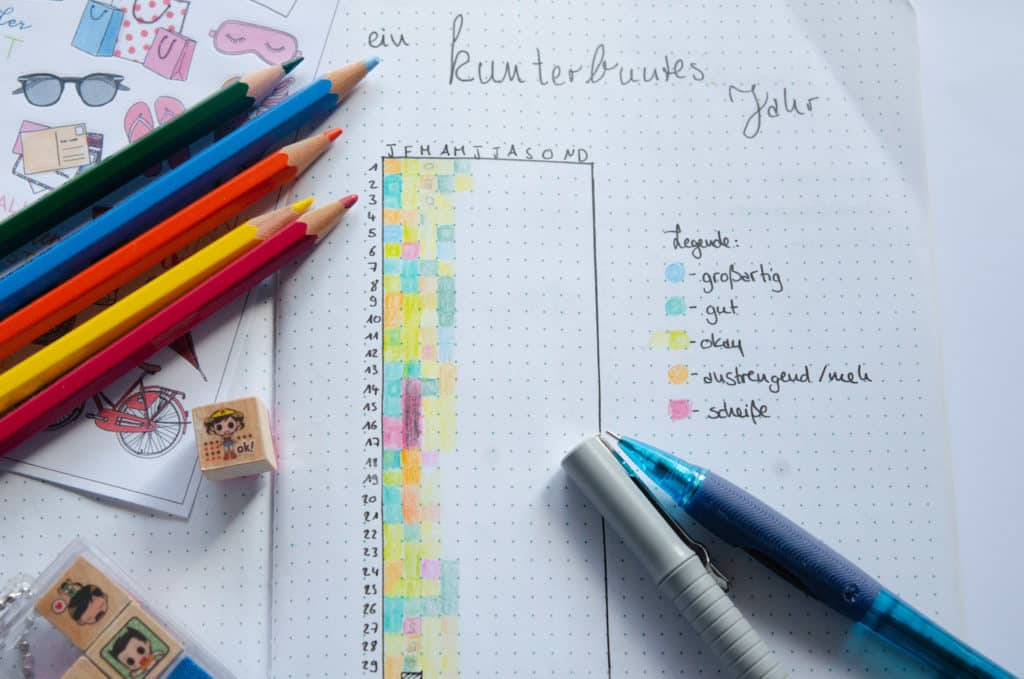 ein
kunterbuntes
Jahr
J F M A M J J A S O N D
1
2
3
4
5
6
7
8
9
10
11
12
13
14
15
16
17
18
19
20
21
22
23
24
25
26
27
28
29
Legende:
- großartig
- gut
- okay
- anstrengend/meh
- scheiße
ok!